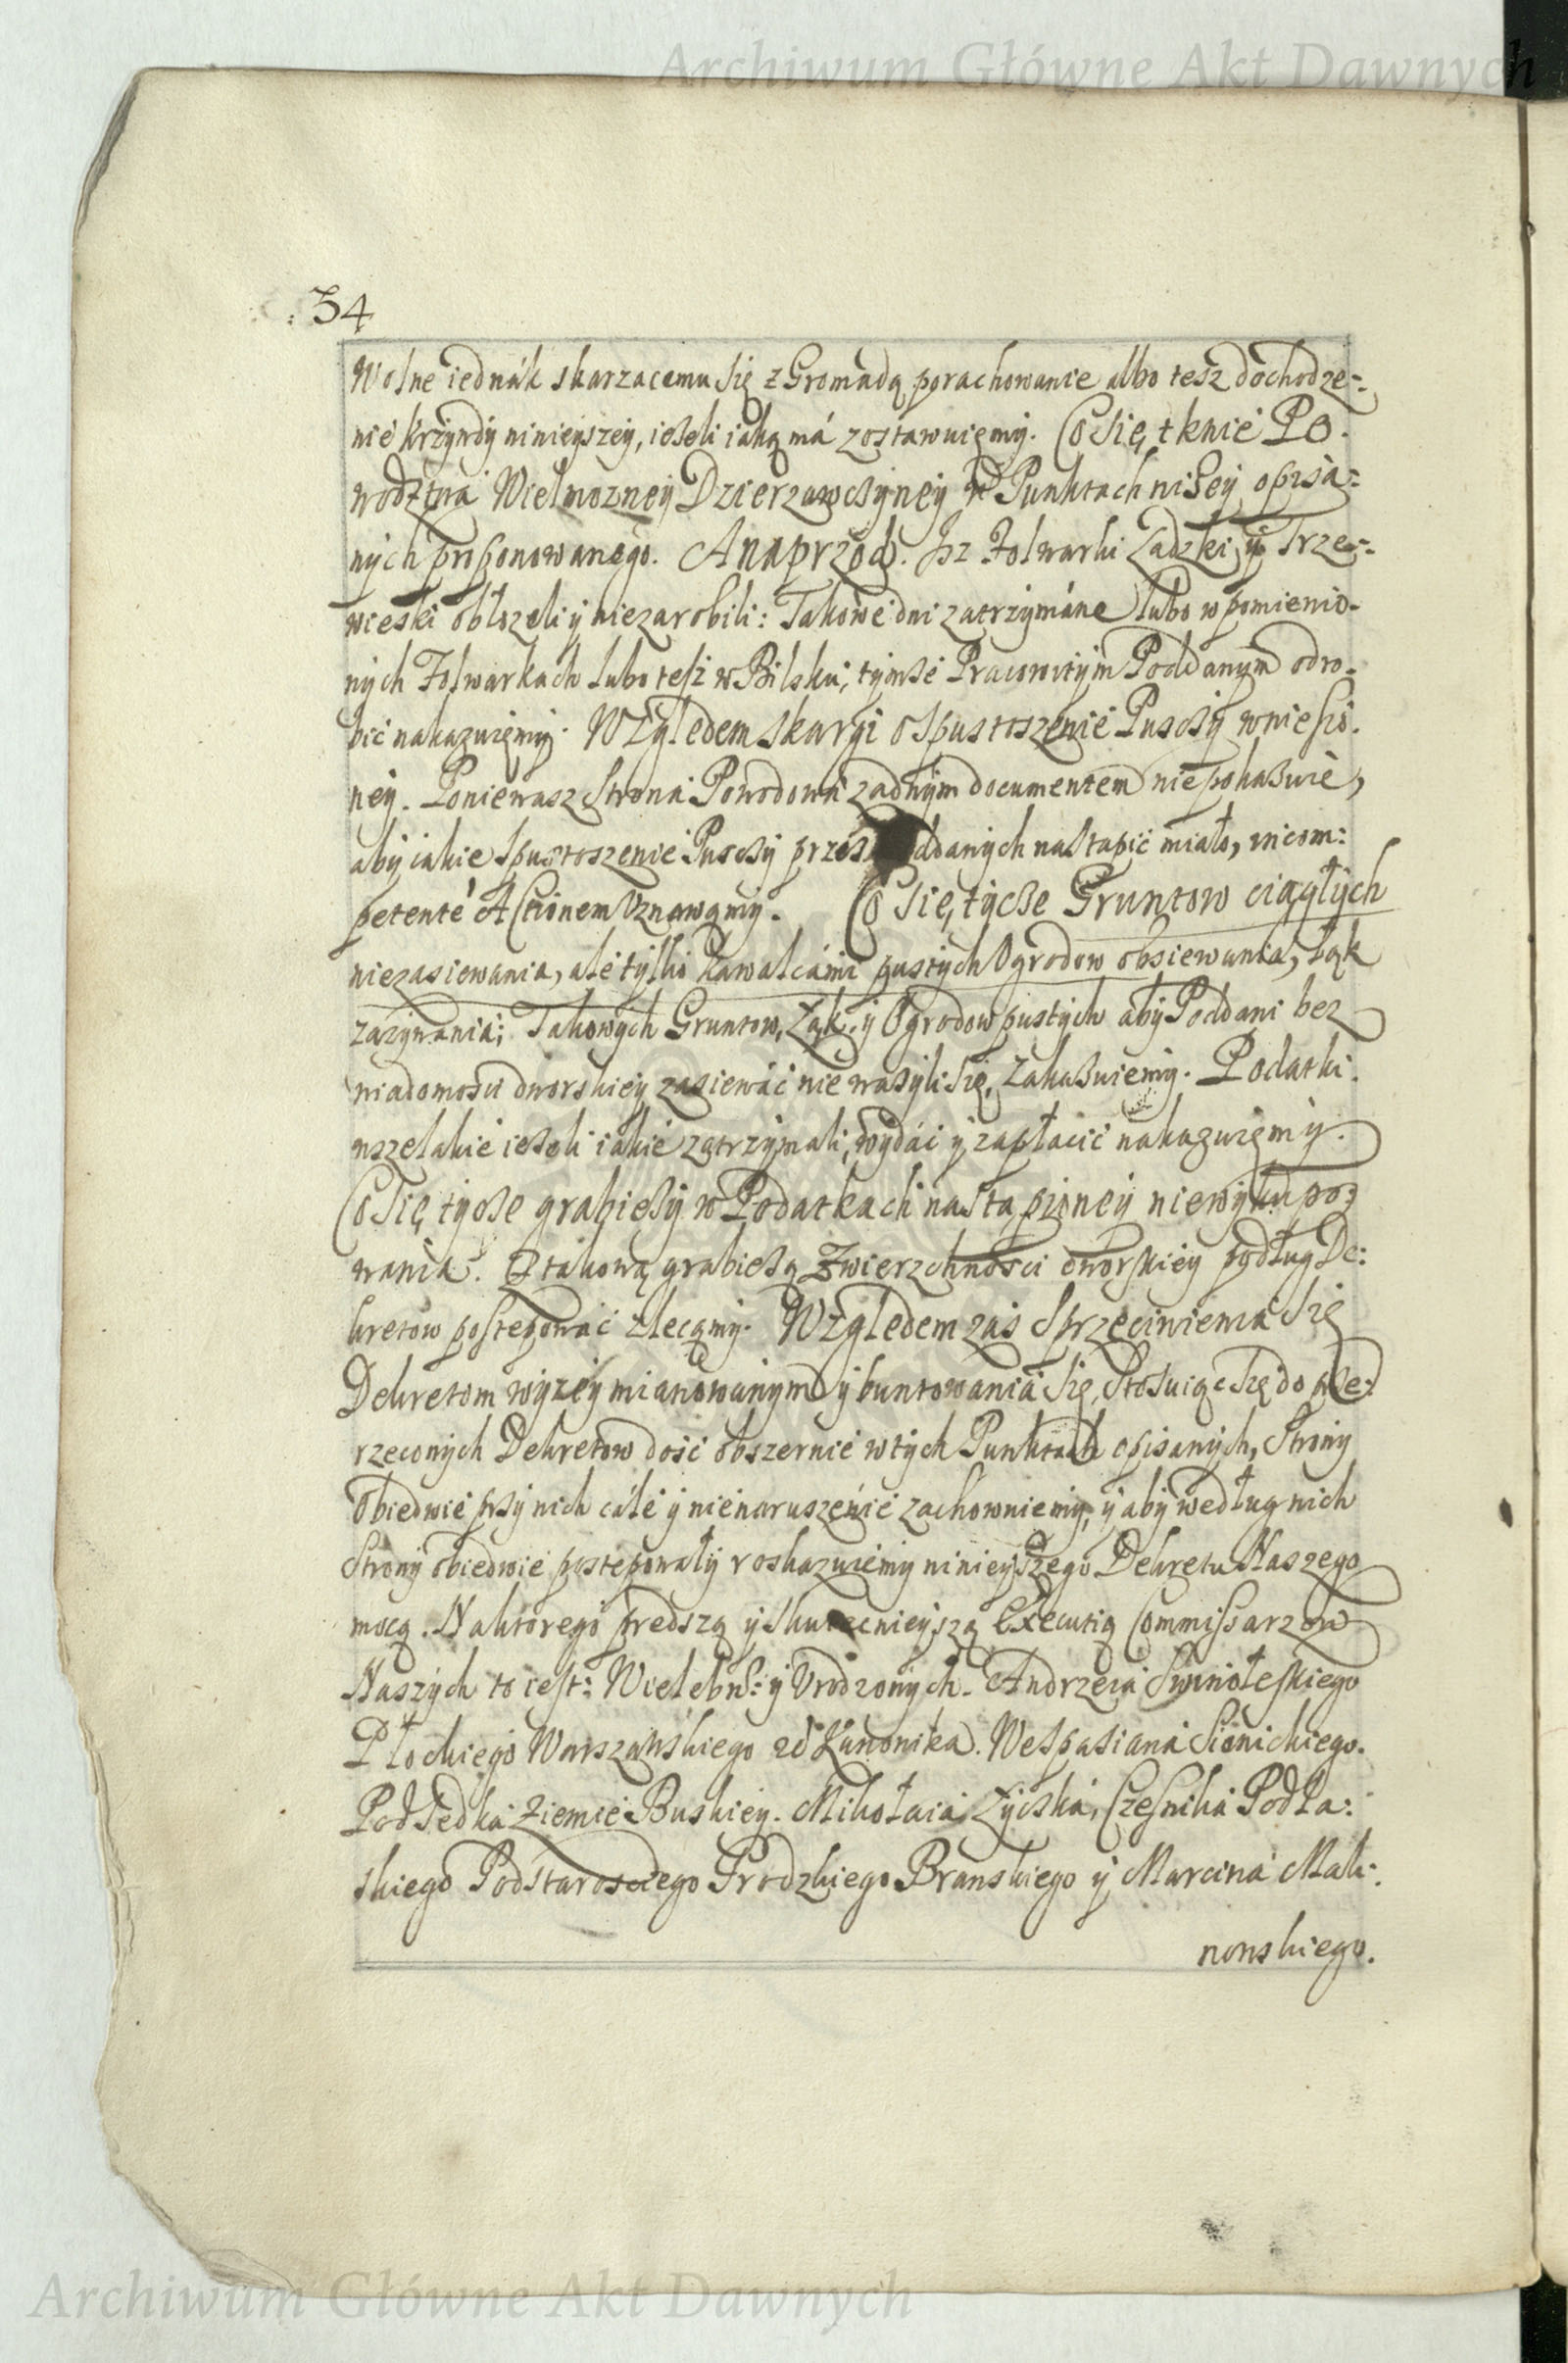 Archiwum Główne Akt Dawnych
34
Wolne iednák skarzącemu się z Gromadą porachowanie albo tesz dochodze=
nié krzywdy ninieyszey, ieżeli iaką má zostawuięmy. Co się tknie Po=
wodztwá Wielmozney Dzierzawczyney w Punktach niżey opisa=
nych proponowanego. A naprzod. Isz Folwarki Ladzki y Trze=
wieski obłszeli y niezarobili: Takowe dni zatrzymáne lubo w pomienio=
nych Folwarkach lubo tesz w Bilsku, tymże Pracowitym Poddanym odro=
bić nakazuięmy. Względem skargi o spustoszenié Pusczy wniesio=
ney. Poniewasz Strona Powodowá zadnym documentem nie pokazuie,
aby iakie spustoszenie Pusczy przés ddanych nastąpić miało, incom:
petenté Actionem Uznawamy. Co się tycze Gruntow ciągłych
niezasiewania, ale tylko kawałcámi pustych Ogrodow obsiewania, Łąk
zazywania; Takowych Gruntow, Łąk, y Ogrodow pustych aby Poddani bez
wiadomości dworskiey zasiewáć nie wazyli się, zakazuięmy. Podatki
wszelakié ieżeli iakié zatrzymali, wydáć y zapłacić nakazuięmy.
Co się tycze grabieży w Podatkach nastąpioney niewykupo=
wania. Z takową grabieżą Zwierzchności dworskiey podług De:
kretow postępować zlecamy. Względem zaś Sprzeciwienia się
Dekretom wyżey mianowanym y buntowania się, Stosuiąc się do prze=
rzeconych Dekretow dość obszernié w tych Punktach opisanych, Strony
Obiedwie przy nich cále y nienaruszenié zachowuięmy, y aby według nich
Strony obiedwie postępowały roskazuięmy ninieyszego Dekretu Naszego
mocą. Na ktorego prędszą y skutecznieyszą Executią Commissarzow
Naszych to iest: Wielebn: y Urodzonych. Andrzeia Swinoleskiego
Płockiego Warszawskiego Kanonika. Wespasiana Sienickiego.
Podsędka Ziemie Buskiey. Mikołaia Zyczka, Czesnika Podla:
skiego Podstarosciego Grodzkiego Branskiego y Marcina Mali=
nowskiego.
Archiwum Główne Akt Dawnych